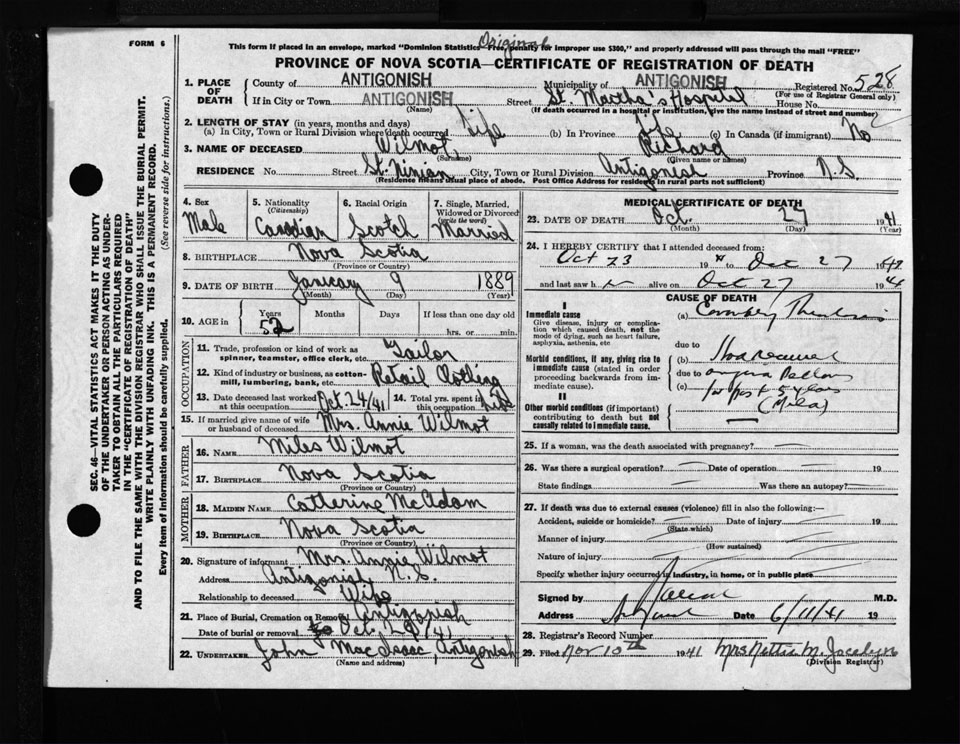 Original
FORM 6
This form if placed in an envelope, marked "Dominion Statistics—Free, penalty for improper use $300," and properly addressed will pass through the mail "FREE"
PROVINCE OF NOVA SCOTIA—CERTIFICATE OF REGISTRATION OF DEATH
1. PLACE OF DEATH County of ANTIGONISH Municipality of ANTIGONISH Registered No. 528
(For use of Registrar General only)
If in City or Town ANTIGONISH Street St. Martha's Hospital House No.
(Name) (If death occurred in a hospital or institution, give the name instead of street and number)
2. LENGTH OF STAY (in years, months and days)
(a) In City, Town or Rural Division where death occurred Life (b) In Province Life (c) In Canada (if immigrant) No
3. NAME OF DECEASED Wilmot, Richard
(Surname) (Given name or names)
RESIDENCE No. Street St. Ninian City, Town or Rural Division Antigonish Province N.S.
(Residence means usual place of abode. Post Office Address for residents in rural parts not sufficient)
4. Sex Male
5. Nationality (Citizenship) Canadian
6. Racial Origin Scotch
7. Single, Married, Widowed or Divorced (write the word) Married
8. BIRTHPLACE Nova Scotia
(Province or Country)
9. DATE OF BIRTH January 9 1889
(Month) (Day) (Year)
10. AGE in Years 52 Months Days If less than one day old
hrs. or min.
OCCUPATION
11. Trade, profession or kind of work as spinner, teamster, office clerk, etc. Tailor
12. Kind of industry or business, as cotton-mill, lumbering, bank, etc. Retail Clothing
13. Date deceased last worked at this occupation Oct. 24/41 14. Total yrs. spent in this occupation Life
15. If married give name of wife or husband of deceased Mrs. Annie Wilmot
FATHER
16. NAME Miles Wilmot
17. BIRTHPLACE Nova Scotia
(Province or Country)
MOTHER
18. MAIDEN NAME Catherine McAdam
19. BIRTHPLACE Nova Scotia
(Province or Country)
20. Signature of informant Mrs. Annie Wilmot
Address Antigonish N.S.
Relationship to deceased Wife
21. Place of Burial, Cremation or Removal Antigonish
Date of burial or removal Oct. 29/41
22. UNDERTAKER John MacIsaac, Antigonish
(Name and address)
MEDICAL CERTIFICATE OF DEATH
23. DATE OF DEATH Oct. 27 1941
(Month) (Day) (Year)
24. I HEREBY CERTIFY that I attended deceased from:
Oct 23 19 to Oct 27 19
and last saw h alive on Oct 27 19
CAUSE OF DEATH
I
Immediate cause
Give disease, injury or complication which caused death, not the mode of dying, such as heart failure, asphyxia, asthenia, etc
(a) Coronary Thrombosis
due to
Morbid conditions, if any, giving rise to immediate cause (stated in order proceeding backwards from immediate cause).
(b)
due to
(c) for past 5 years
(Mild)
II
Other morbid conditions (if important) contributing to death but not causally related to immediate cause.
25. If a woman, was the death associated with pregnancy?
26. Was there a surgical operation? Date of operation 19
State findings Was there an autopsy?
27. If death was due to external causes (violence) fill in also the following:—
Accident, suicide or homicide? Date of injury 19
(State which)
Manner of injury
(How sustained)
Nature of injury
Specify whether injury occurred in industry, in home, or in public place
Signed by M.D.
Address Date 6/11/41 19
28. Registrar's Record Number
29. Filed Nov 10th 1941 Mrs Nettie M. Jocelyn
(Division Registrar)
SEC. 46—VITAL STATISTICS ACT MAKES IT THE DUTY
OF THE UNDERTAKER OR PERSON ACTING AS UNDERTAKER
TO OBTAIN ALL THE PARTICULARS REQUIRED
IN THE "CERTIFICATE OF REGISTRATION OF DEATH"
AND TO FILE THE SAME WITH THE DIVISION REGISTRAR WHO SHALL ISSUE THE BURIAL PERMIT.
WRITE PLAINLY WITH UNFADING INK. THIS IS A PERMANENT RECORD.
Every item of information should be carefully supplied. (See reverse side for instructions.)